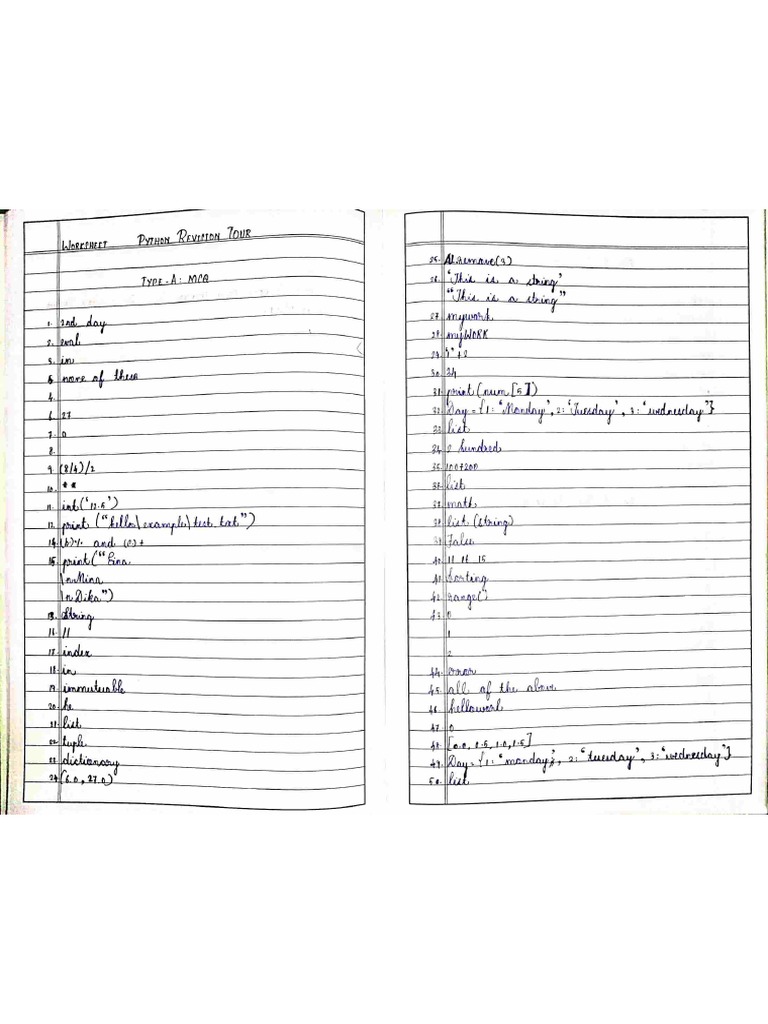 WORKSHEET PYTHON REVISION TOUR
TYPE-A: MCQ
1. 2nd day
2. eval
3. in
5. none of these
4.
6. 27
7. 0
8.
9. (8/4)/2
10. **
11. int('12.5')
12. print ("hello\example\test.txt")
14. (b)% and (c)+
15. print("Eina
\nMina
\nDika")
13. String
16. //
17. index
18. in
19. immutuable
20. he
21. list
22. tuple
23. dictionary
24. (6.0, 27.0)
25. remove(3)
26. 'This is a string'
"This is a string"
27. mywork
28. myWORK
29.
30. 34
31. print (num[5])
32. Day = {1: 'Monday', 2: 'Tuesday', 3: 'wednesday'}
33. list
34. 2 hundred
35. 100+200
36. list
37. math
38. list (string)
39. False
40. 11 15
41. Sorting
42. range()
43. 0
1
2
44. error
45. all of the above
46. 
47. 0
48. [0.0, 0.5, 1.0, 1.5]
49. Day = {1: 'monday', 2: 'tuesday', 3: 'wednesday'}
50. list